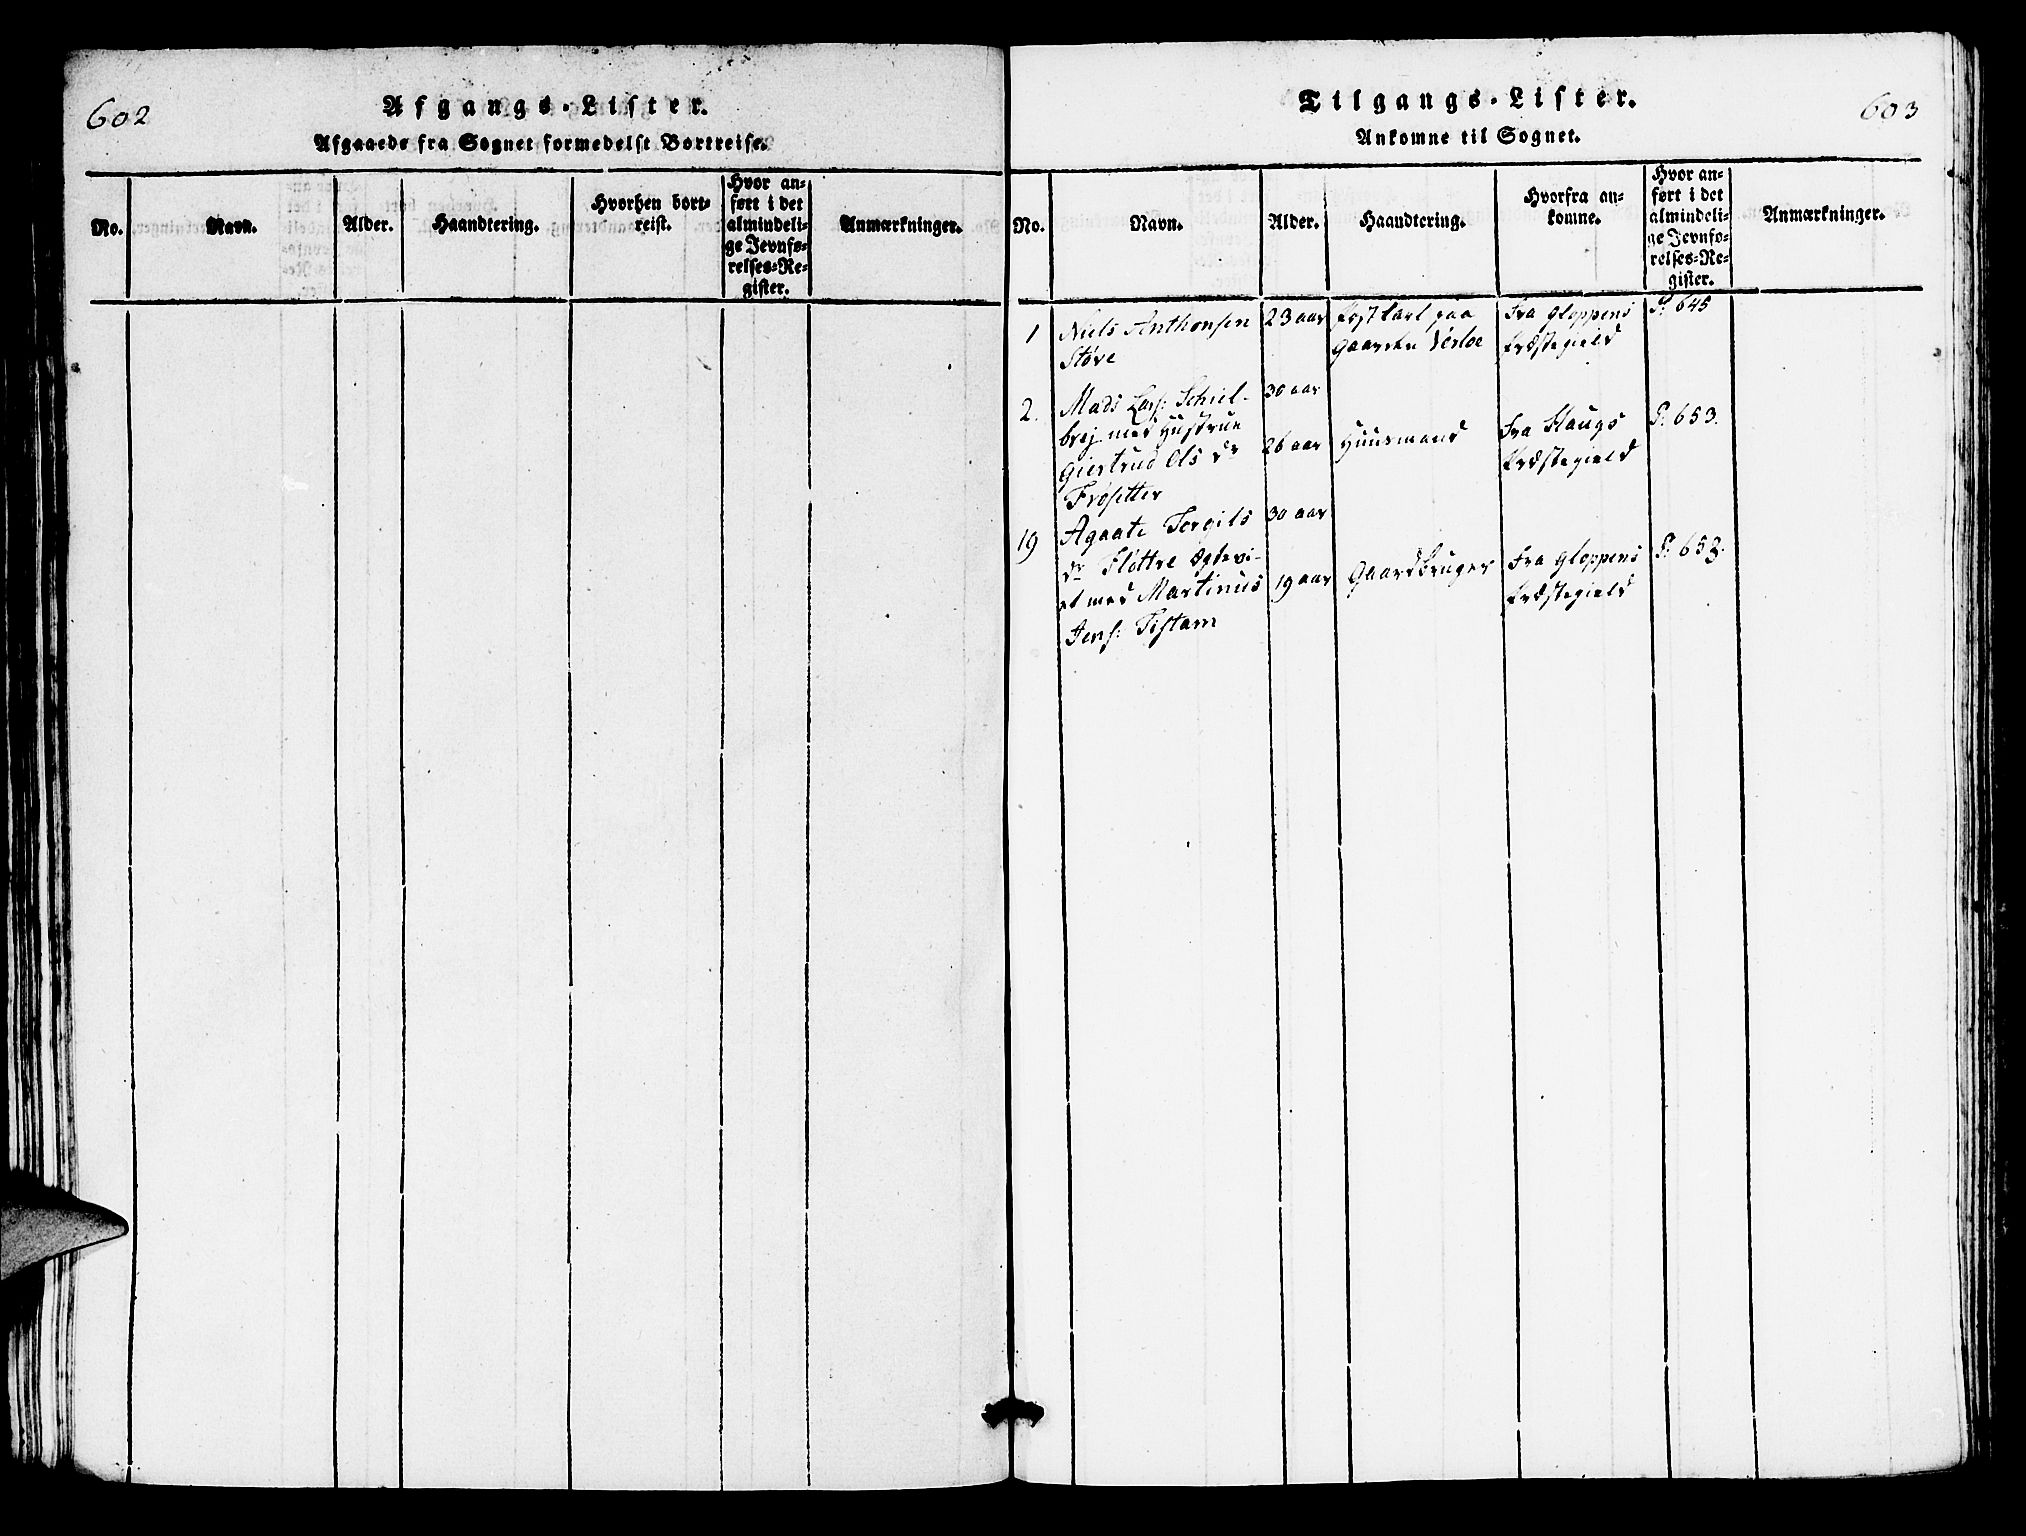 602
Afgangs-Lister.
Afgaaede fra Sognet formedelst Bortreise.
No.
Navn.
Alder.
Haandtering.
Hvorhen bort-
reist.
Hvor an-
ført i det
almindeli-
ge Jevnfø-
relses-Re-
gister.
Anmærkninger.
603
Tilgangs-Lister.
Ankomne til Sognet.
No.
Navn.
Alder.
Haandtering.
Hvorfra an-
komne.
Hvor an-
ført i det
almindeli-
ge Jevnfø-
relses-Re-
gister.
Anmærkninger.
1
Niels Anthonsen
Støve
23 aar
paa
Gaarden
Fra Gloppens
Præstegield
P: 645
2.
Mads Lars: Schiel-
brej med Hustrue
Giertrud Ols Dr
Frøsetter
30 aar
26 aar
Huusmand
Fra Haugs
Præstegield
P: 653.
19
Agaate Torgils
Dr Fløttre Ægtevi-
et med Martinus
Jens: Tistam
30 aar
19 aar
Gaardbruger
Fra Gloppens
Præstegield
P: 652.